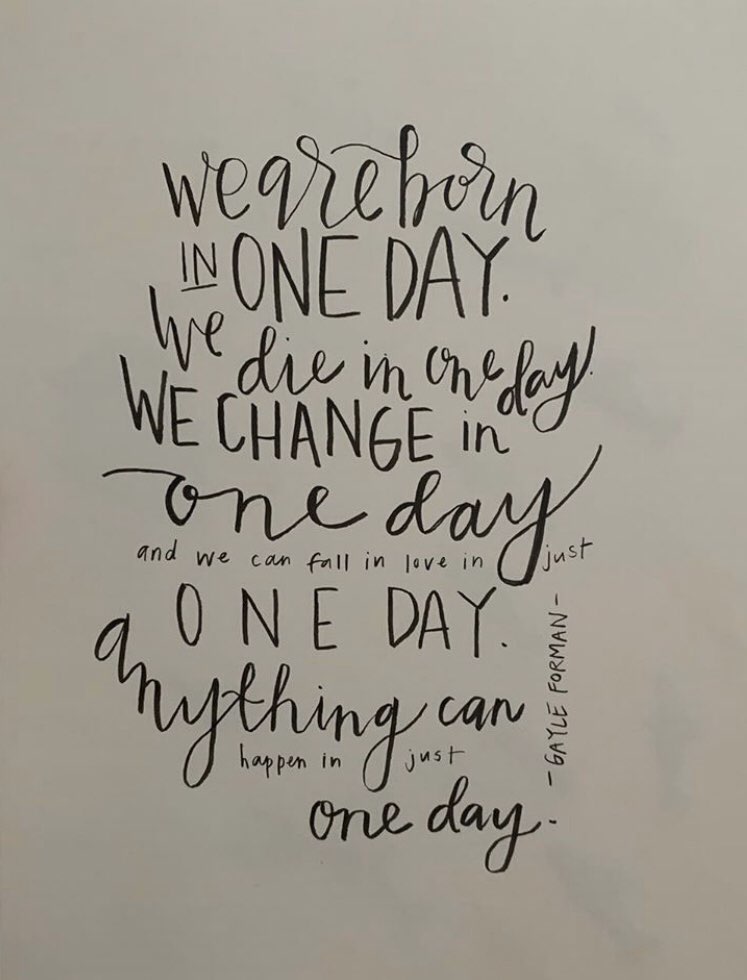 we are born
IN ONE DAY.
We die in one day.
WE CHANGE in
one day
and we can fall in love in just
ONE DAY.
anything can
happen in just
one day.
- GAYLE FORMAN -